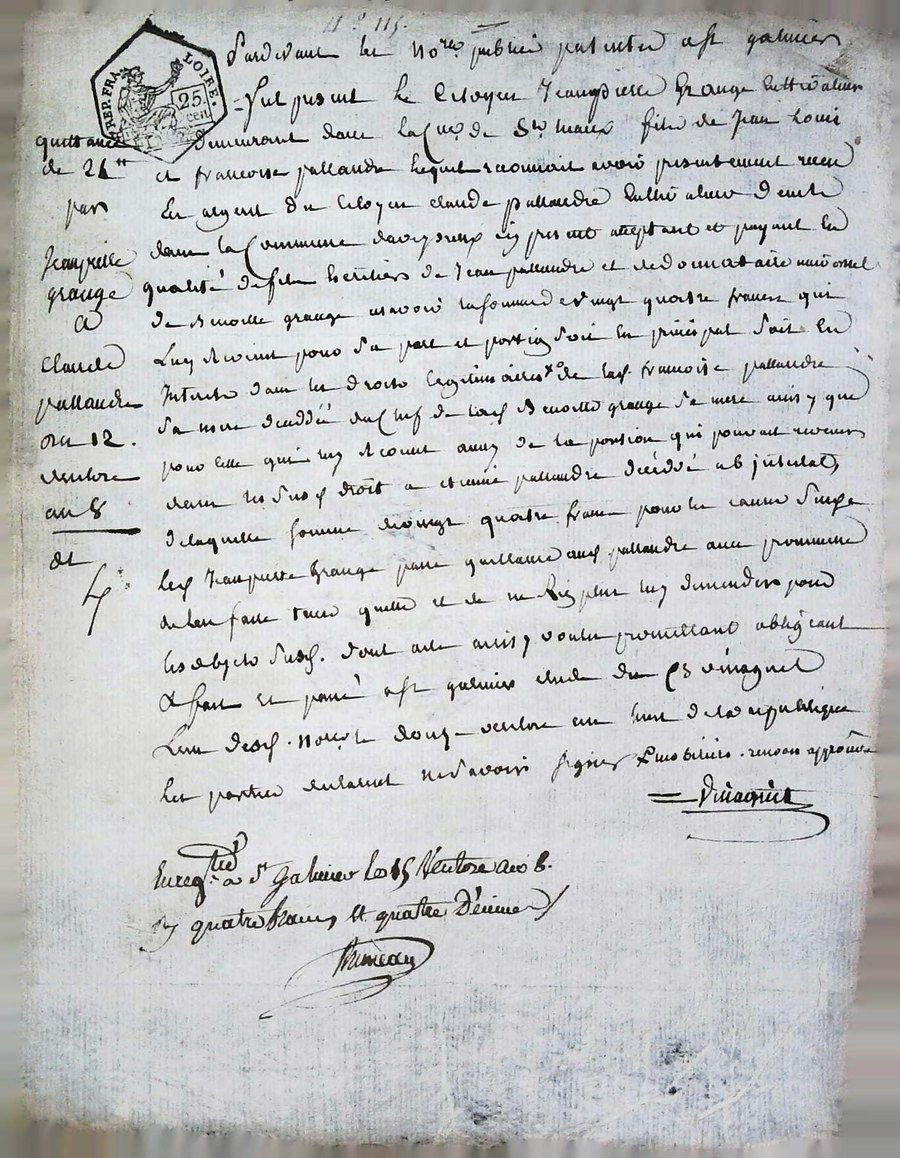 N° 115.
REP. FRA.
LOIRE.
25.
cen
Pardevant les no.res publics patentés a St galmier
fut present le Citoyen Jeanpierre Grange cultivateur
demeurant dans la Cne de St medard fils de Jean Louis
et francoise pallandre lequel reconnoit avoir presentement receu
En argent du Citoyen claude pallandre cultivateur demt
dans la Commune daveyzieux cy present acceptant et payant en
qualité de fils heritiers de Jean pallandre et de donnataire universel
de Benoitte grange a savoir la somme de vingt quatre francs qui
luy revient pour sa part et portion soit en principal soit en
Interets dans les droits legitimaires de lad. francoise pallandre
sa mere decedée du chef de lad. Benoitte grange sa mere ainsy que
pour celle qui luy revient aussy de la portion qui pouvait revenir
dans les susd. droit a etienne pallandre décédé ab intestat,
de laquelle somme de vingt quatre francs pour les causes
led. Jeanpierre Grange passe quittance aud. pallandre avec promesse
de len faire tenir quitte et de ne Rien plus luy demander pour
les objets susd. dont acte ainsy voulu promettant obligeant
& fait et passé a St galmier etude du Cn vinagnet
Lun desd. notres le douze ventose an huit de la republique
les parties declarent ne savoir signer approuvée
Vinagnet
quittance
de 24tt
par
Jeanpierre
grange
a
Claude
pallandre
du 12.
ventose
an 8
Enregtré a St Galmier le 15 Ventose an 8.
R quatre francs et quatre Décimes